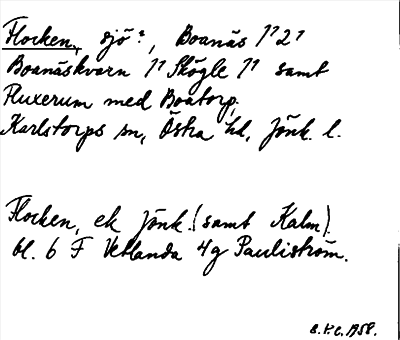 Flocken, sjö?, Boanäs 1¹ 2¹
Boanäskvarn 1¹ Skögle 1¹ samt
Fluxerum med Boatorp,
Karlstorps sn, Östra hd, Jönk. l.
Flocken, ek Jönk. (samt Kalm)
bl. 6 F Vetlanda 4g Pauliström.
1958.